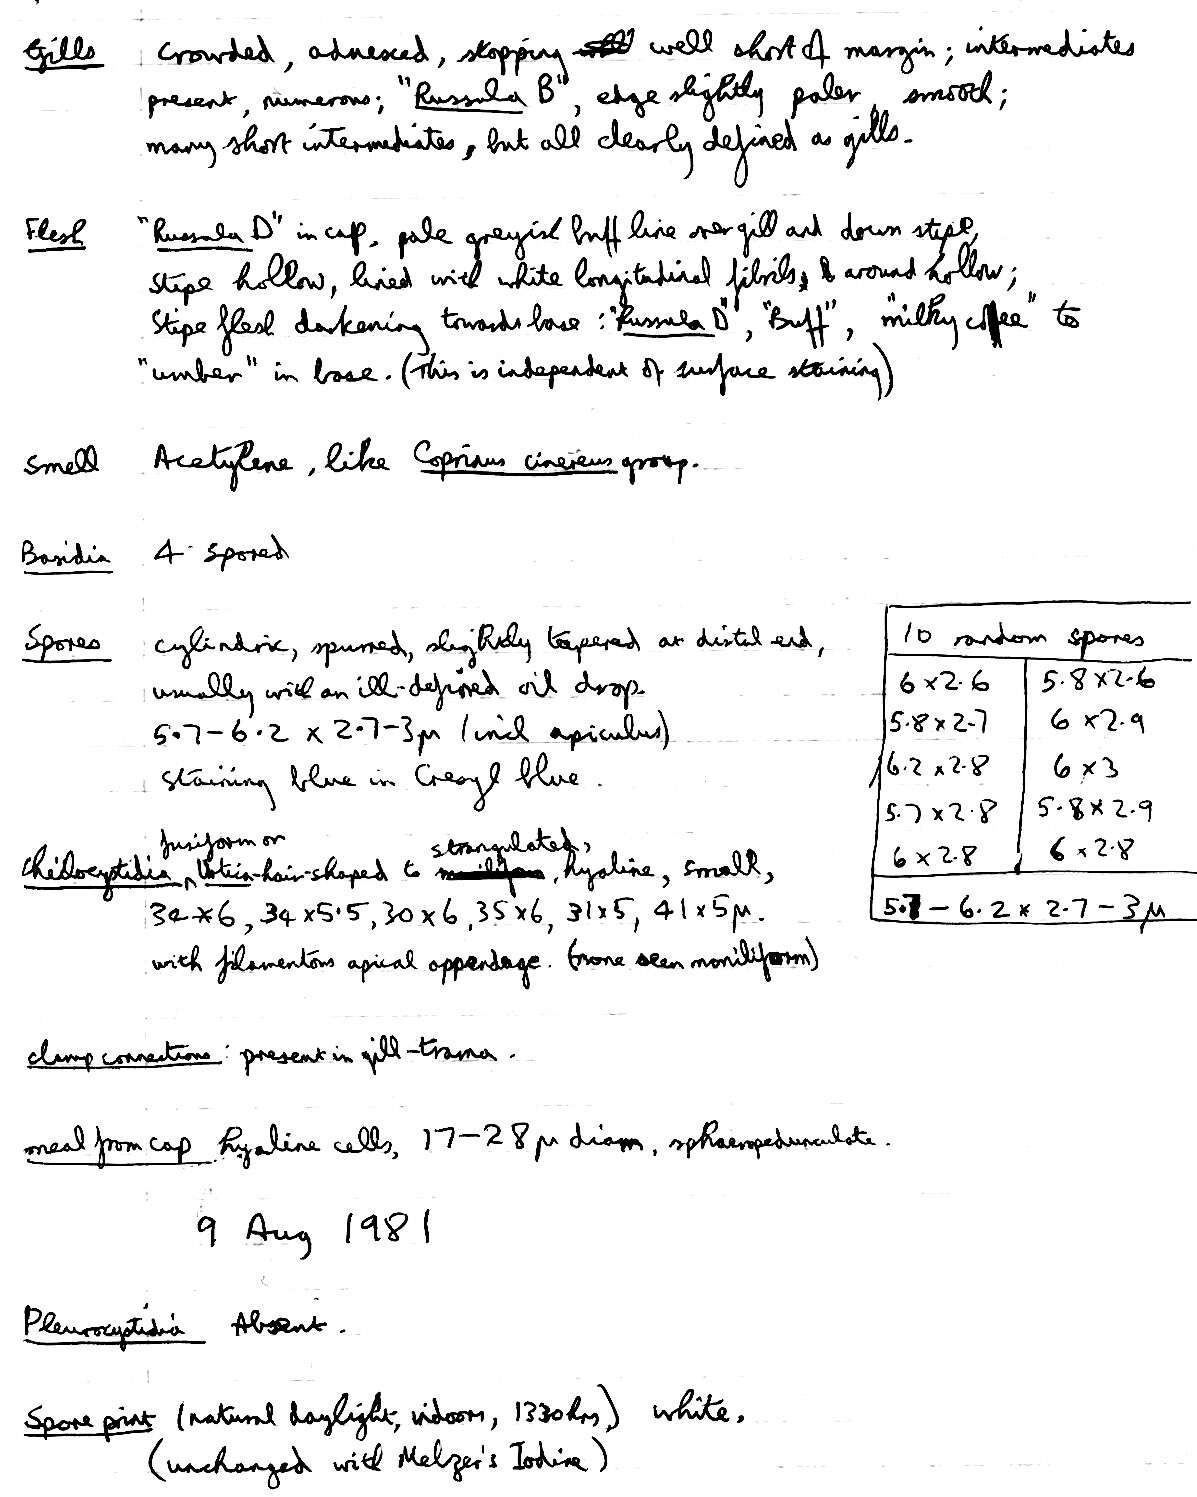 Gills Crowded, adnexed, stopping well short of margin; intermediates
present, numerous; "Russula B", edge slightly paler, smooth;
many short intermediates, but all clearly defined as gills.
Flesh "Russula D" in cap, pale greyish buff line over gill and down stipe,
Stipe hollow, lined with white longitudinal fibrils, around hollow;
Stipe flesh darkening towards base: "Russula D", "Buff", "milky coffee" to
"umber" in base. (This is independent of surface staining)
Smell Acetylene, like Coprinus cinereus group.
Basidia 4-spored
Spores cylindric, spurred, slightly tapered at distal end,
usually with an ill-defined oil drop.
5.7-6.2 x 2.7-3µ (incl apiculus)
Staining blue in Cresyl blue.
10 random spores
6 x 2.6 5.8 x 2.6
5.8 x 2.7 6 x 2.9
6.2 x 2.8 6 x 3
5.7 x 2.8 5.8 x 2.9
6 x 2.8 6 x 2.8
5.7 - 6.2 x 2.7 - 3µ
fusiform or strangulated,
Cheilocystidia, -hair-shaped to , hyaline, small,
34 x 6, 34 x 5.5, 30 x 6, 35 x 6, 31 x 5, 41 x 5µ.
with filamentous apical appendage. (none seen moniliform)
clamp connections: present in gill-trama.
meal from cap hyaline cells, 17-28µ diam, sphaeropedunculate.
9 Aug 1981
Pleurocystidia Absent.
Spore print (natural daylight, indoors, 1330 hrs) white.
(unchanged with Melzer's Iodine)